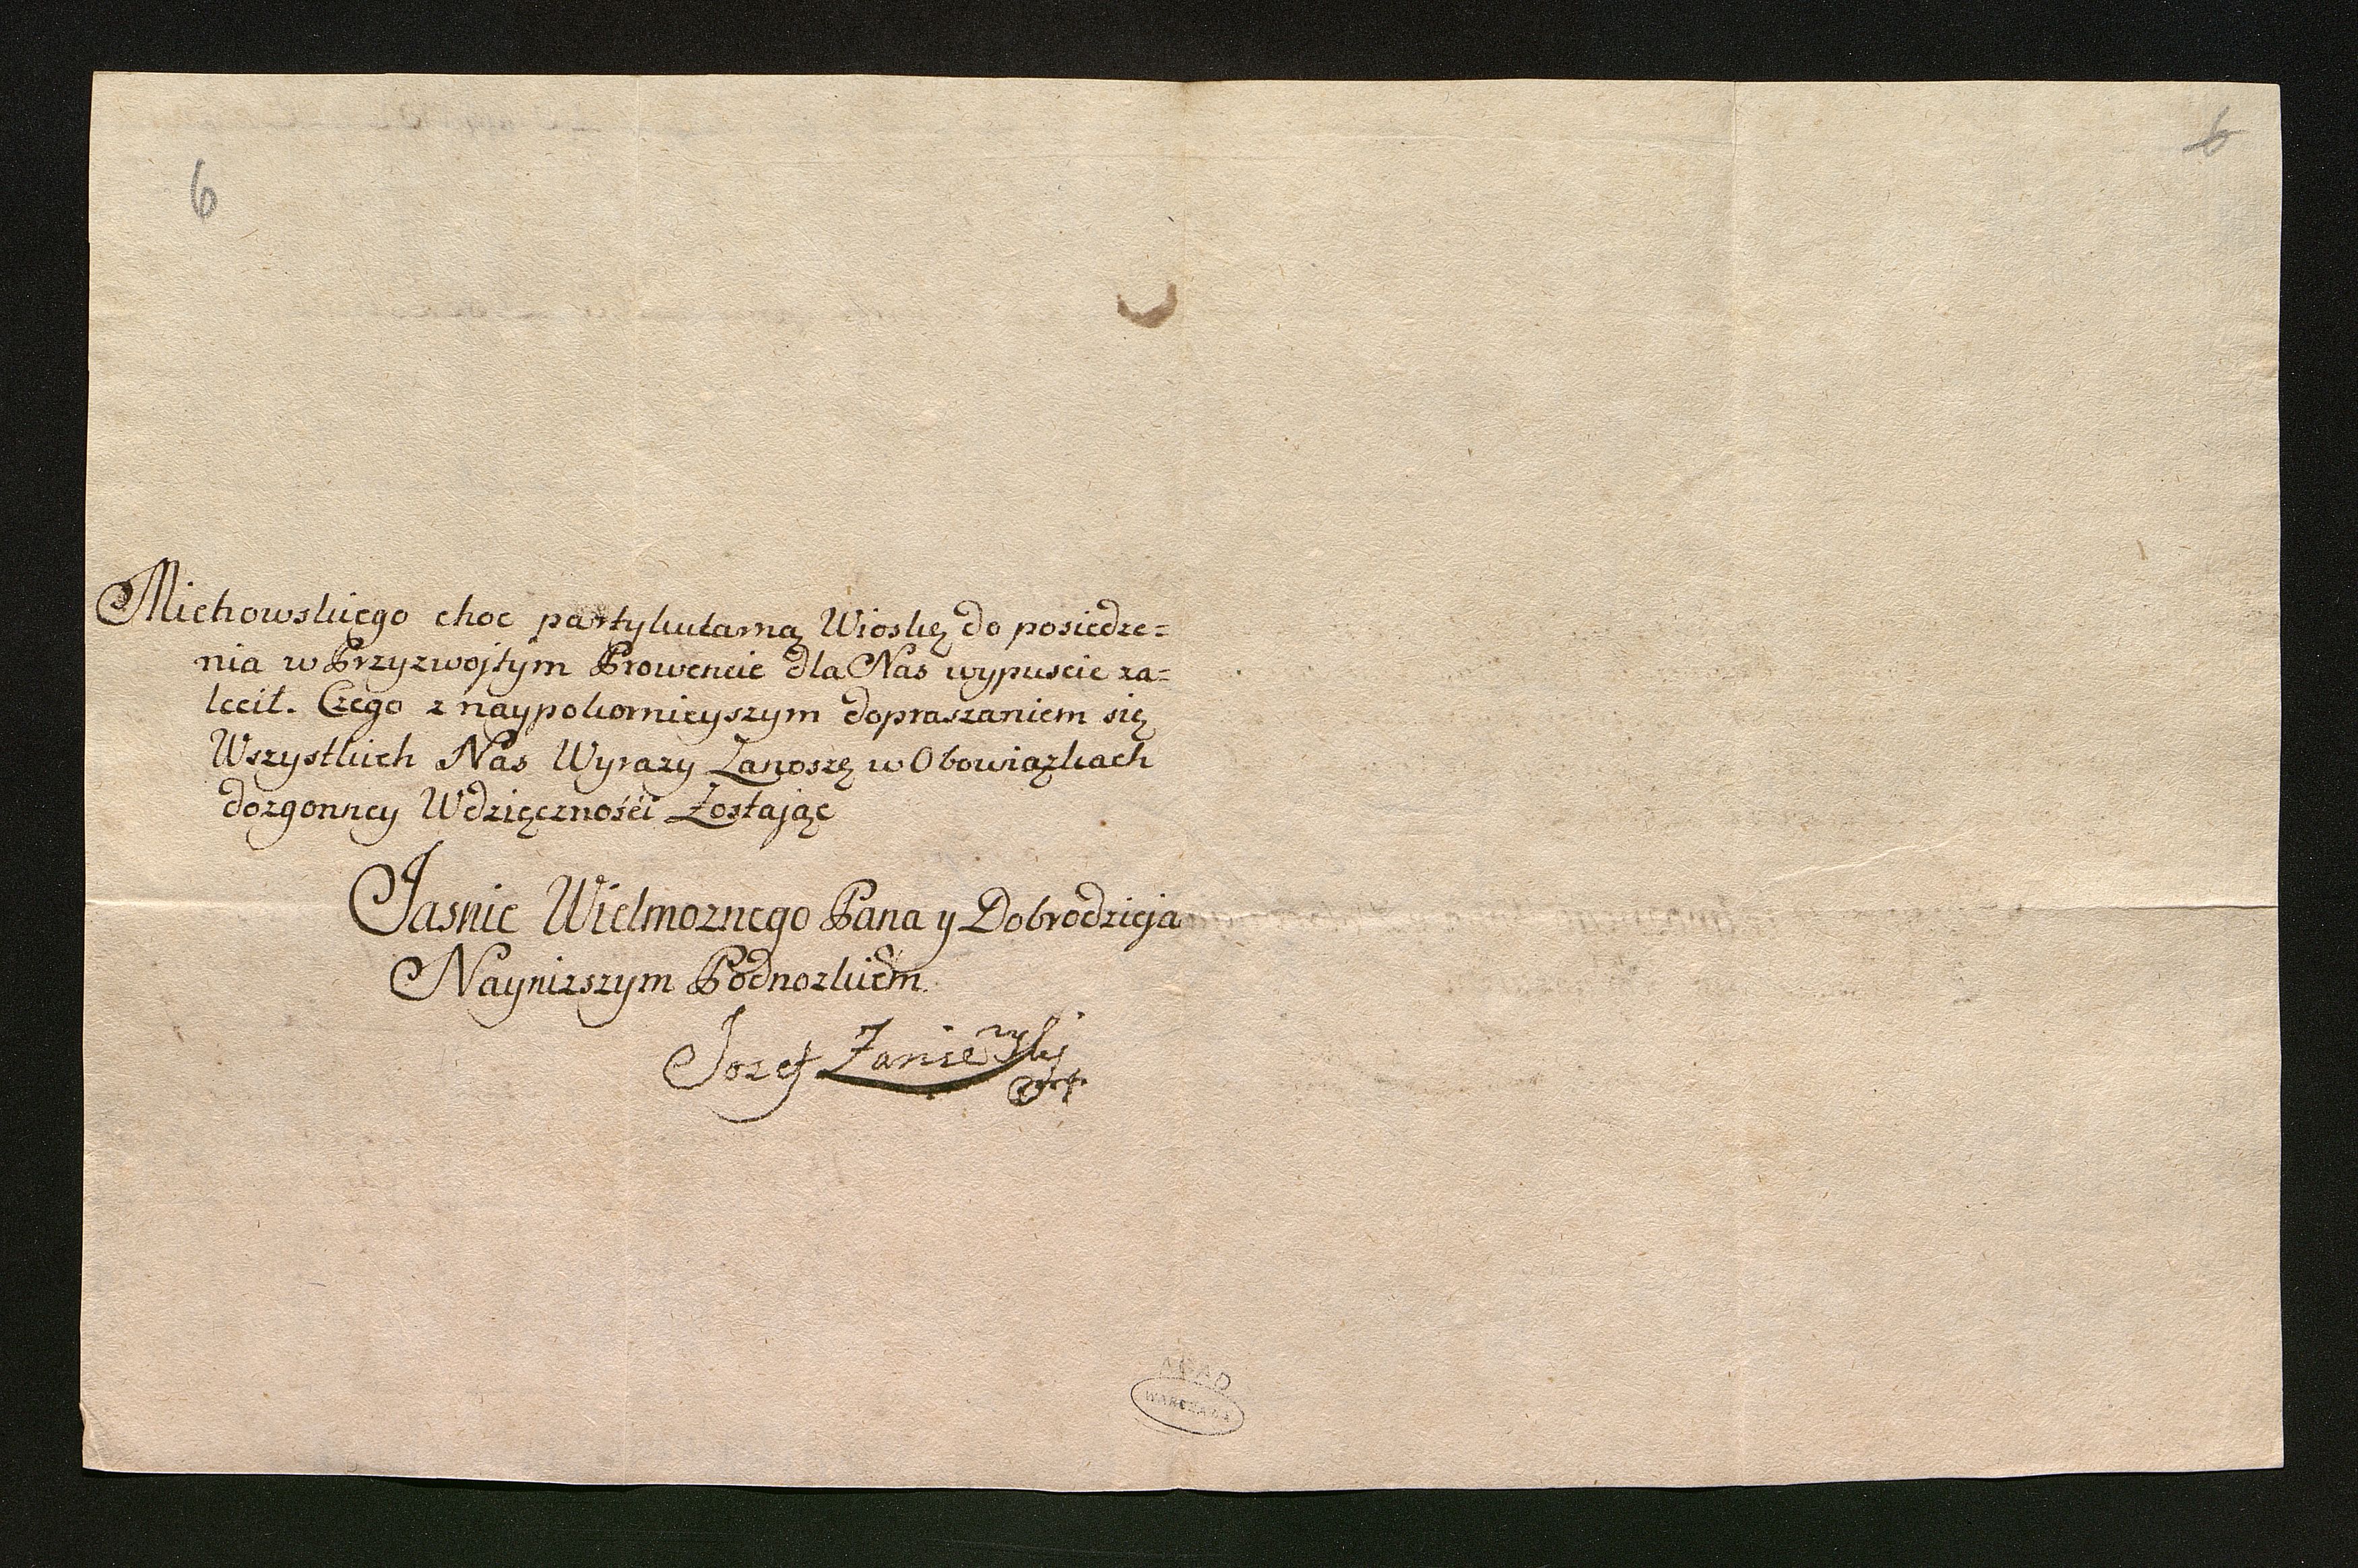 6
6
Michowskiego choc partykularną Wioskę do posiedze=
nia w Przyzwojtym Prowencie dla Nas wypuscic za=
lecił. Czego z naypokornieyszym dopraszaniem się
Wszystkich Nas Wyrazy Zanoszę w Obowiązkach
dozgonney Wdzięcznośći Zostając
Jasnie Wielmoznego Pana y Dobrodzieja
Naynizszym Podnozkiem.
Jozef Zaniewskj
AGAD
WARSZAWA